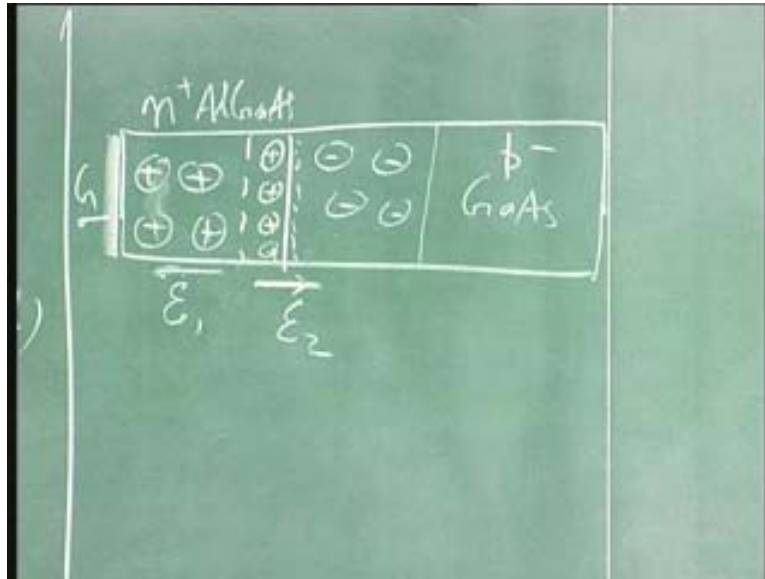 n⁺ AlGaAs
G
⊕ ⊕ ⊕ ⊖ ⊖
⊕
⊕ ⊕ ⊕ ⊖ ⊖
p⁻
GaAs
ℰ₁
ℰ₂
)